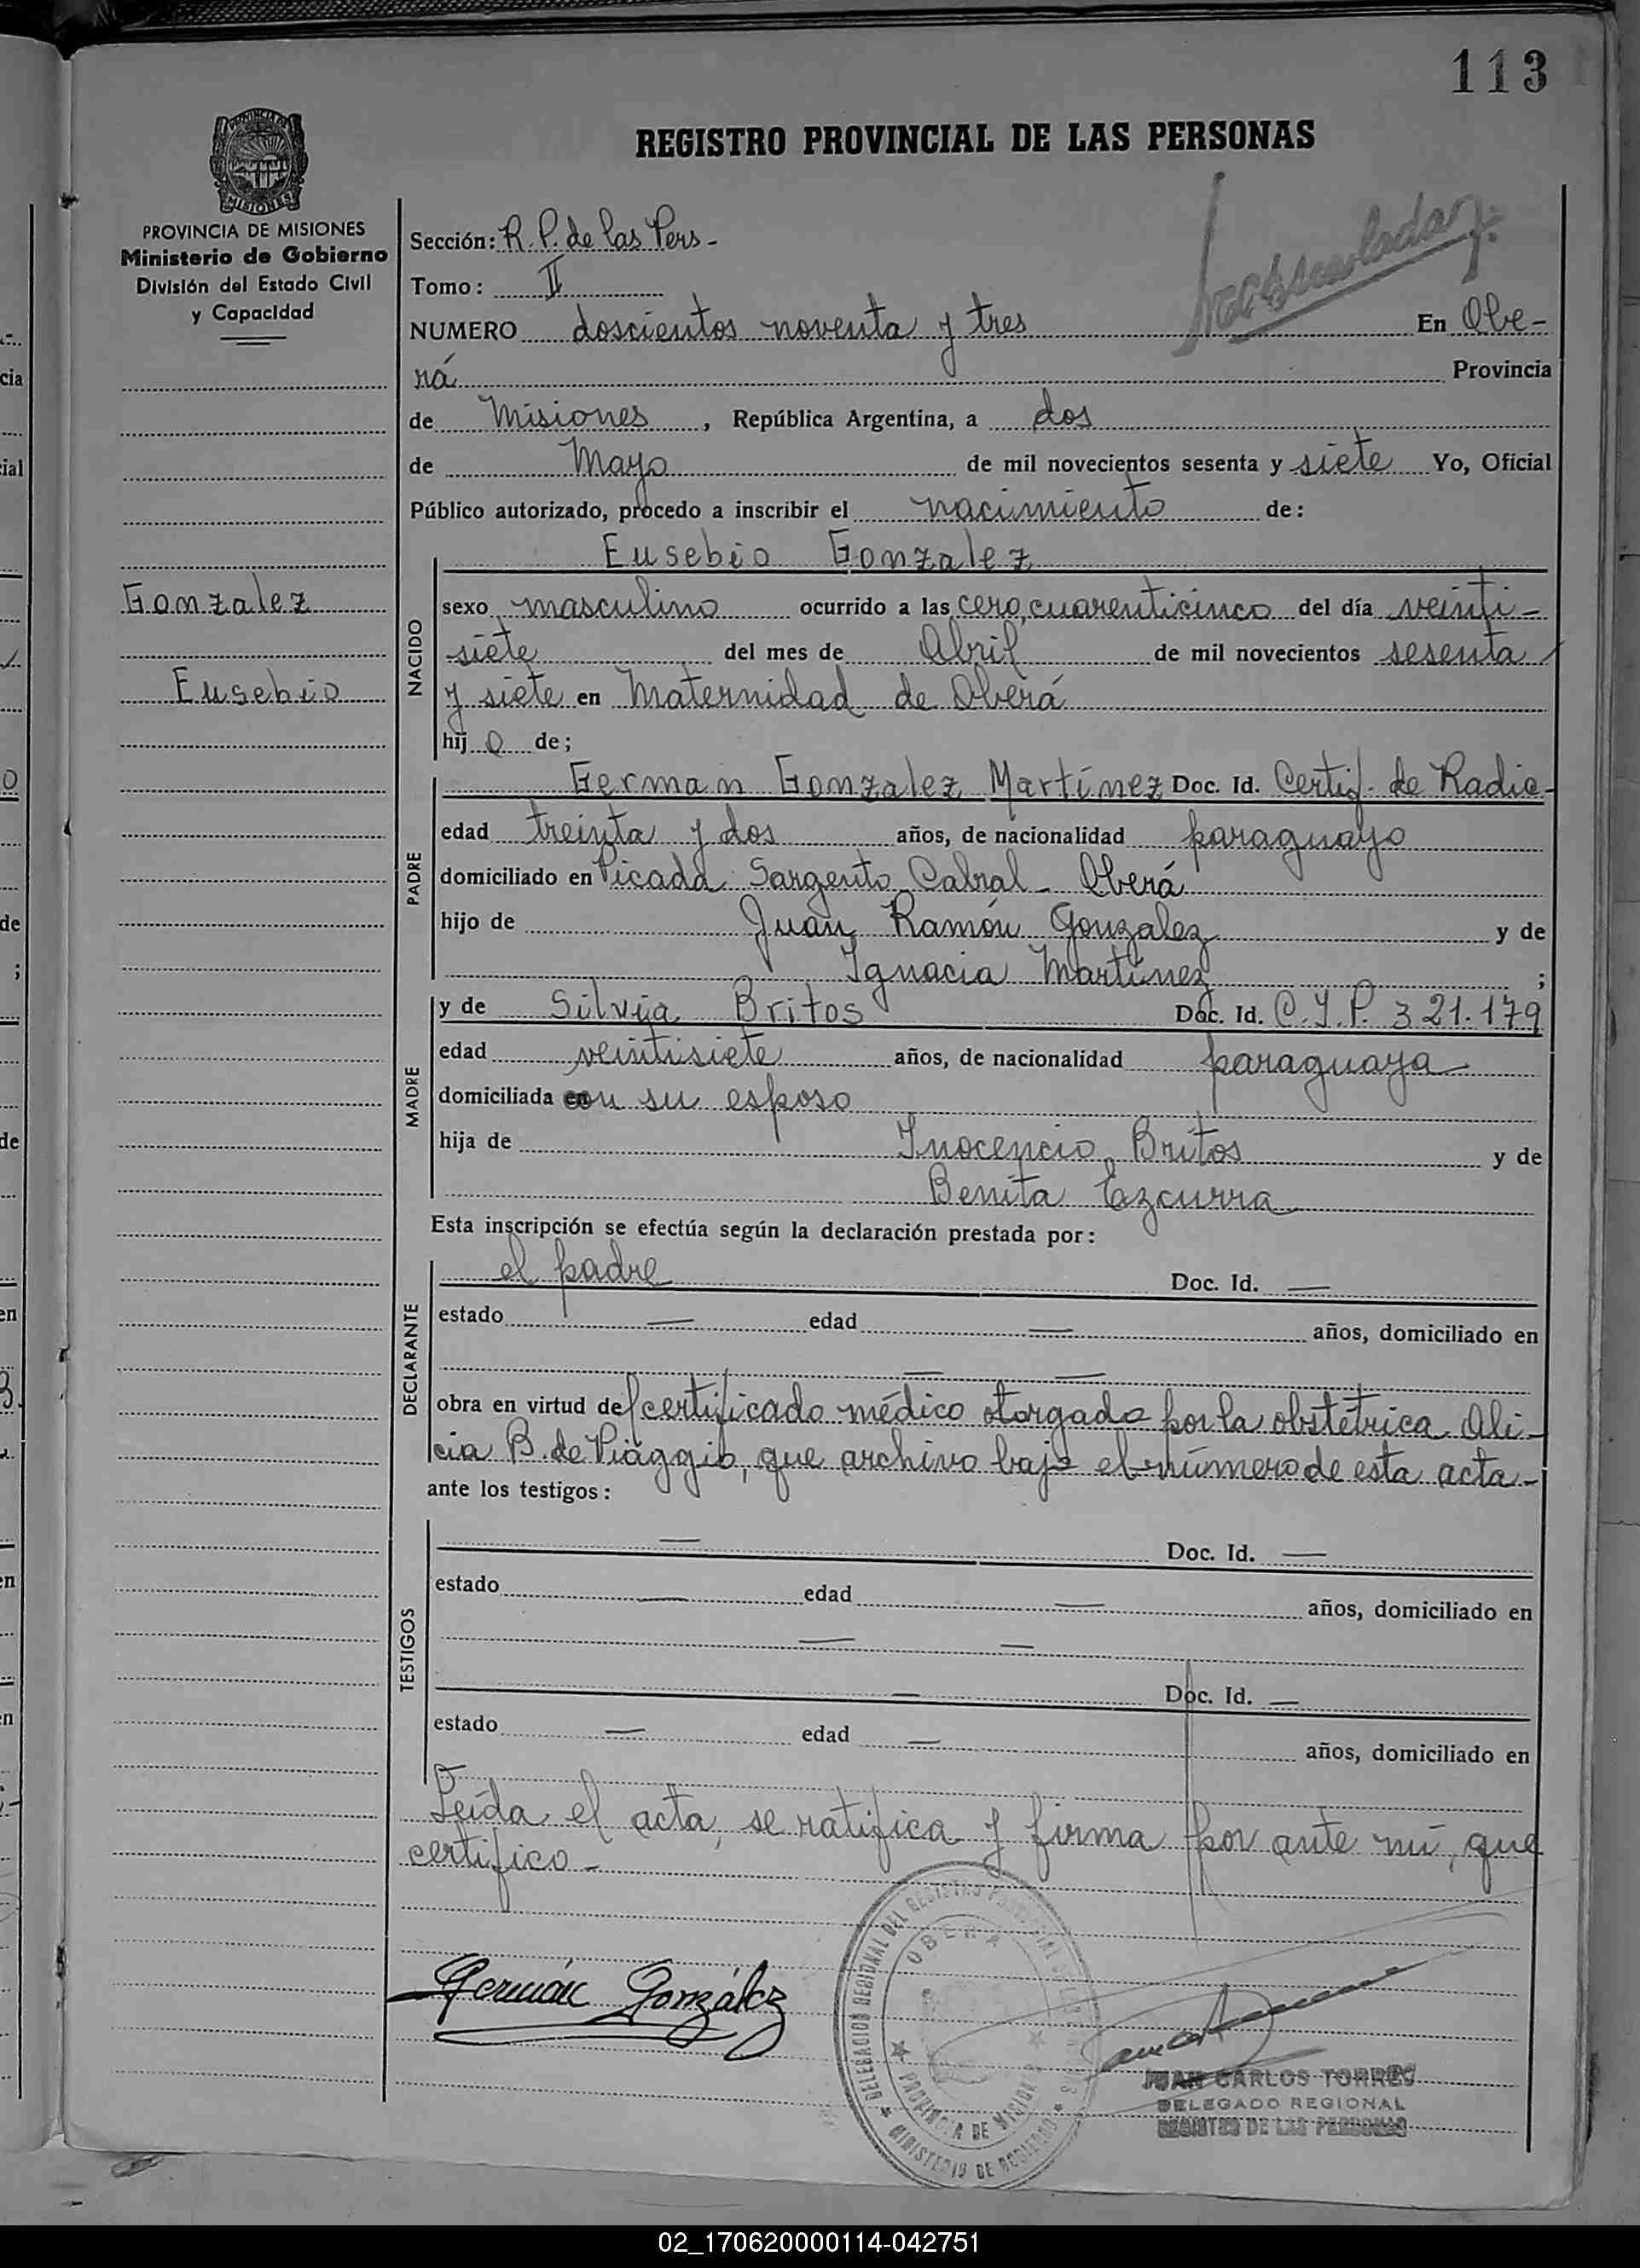 113
REGISTRO PROVINCIAL DE LAS PERSONAS
PROVINCIA DE MISIONES
Ministerio de Gobierno
División del Estado Civil
y Capacidad
Gonzalez
Eusebio
Sección: R. P. de las Pers-
Tomo: II
NUMERO doscientos noventa y tres En Obe-
rá Provincia
de Misiones, República Argentina, a dos
de Mayo de mil novecientos sesenta y siete Yo, Oficial
Público autorizado, procedo a inscribir el nacimiento de:
NACIDO
Eusebio Gonzalez
sexo masculino ocurrido a las cero, cuarenticinco del día veinti-
siete del mes de Abril de mil novecientos sesenta
y siete en Maternidad de Oberá
hij o de;
PADRE
German Gonzalez Martínez Doc. Id. Certif. de Radic-
edad treinta y dos años, de nacionalidad paraguayo
domiciliado en Picada Sargento Cabral - Oberá
hijo de Juan Ramón Gonzalez y de
Ignacia Martínez ;
MADRE
y de Silvia Britos Doc. Id. C.I.P. 321.179
edad veintisiete años, de nacionalidad paraguaya
domiciliada con su esposo
hija de Inocencio Britos y de
Benita Ezcurra
Esta inscripción se efectúa según la declaración prestada por:
DECLARANTE
el padre Doc. Id. —
estado — edad — años, domiciliado en
— —
obra en virtud del certificado médico otorgado por la obstétrica Ali-
cia B. de Piaggio, que archivo bajo el número de esta acta-
ante los testigos:
TESTIGOS
— Doc. Id. —
estado — edad — años, domiciliado en
— —
— Doc. Id. —
estado — edad — años, domiciliado en
Leída el acta, se ratifica y firma por ante mí, que
certifico-
Germán González
DELEGACION REGIONAL DEL REGISTRO
OBERA
PROVINCIA DE MISIONES
MINISTERIO DE GOBIERNO
JUAN CARLOS TORRES
DELEGADO REGIONAL
REGISTRO DE LAS PERSONAS
02_170620000114-042751